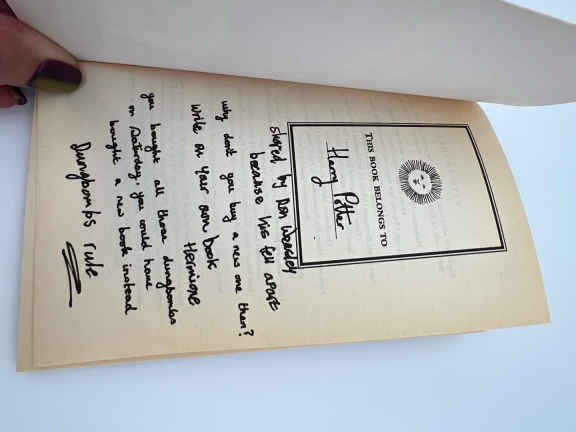 THIS BOOK BELONGS TO
Harry Potter
shared by Ron Weasley
because his fell apart
why don't you buy a new one then?
write on your own book
Hermione
you bought all those dungbombs
on Saturday, you could have
bought a new book instead
Dungbombs rule